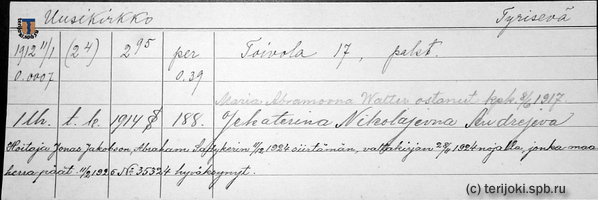 Uusikirkko Tyrisevä
1912 11/1 (24) 2 95 per Toivola 17, palst.
0.0007 0.39
Maria Abramovna Walter ostanut kpk. 8/6 1917.
1 lh. t. k. 1914 188. Jekaterina Nikolajevna Andrejeva
Hoitaja Jonas Jakobson, Abraham 1924 siirtämän, valtakirjan 1924 nojalla, jonka maa
herra päät. 1925 No 35324 hyväksynyt.
(c) terijoki.spb.ru